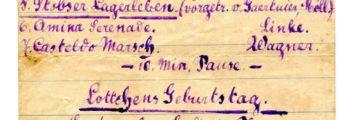 5. Stobser Lagerleben. (vorgetr. v. Gaertner, Moll)
6. Amina Serenade. Linke.
7. Casteldo Marsch. Wagner.
— 10. Min. Pause. —
Lottchens Geburtstag.